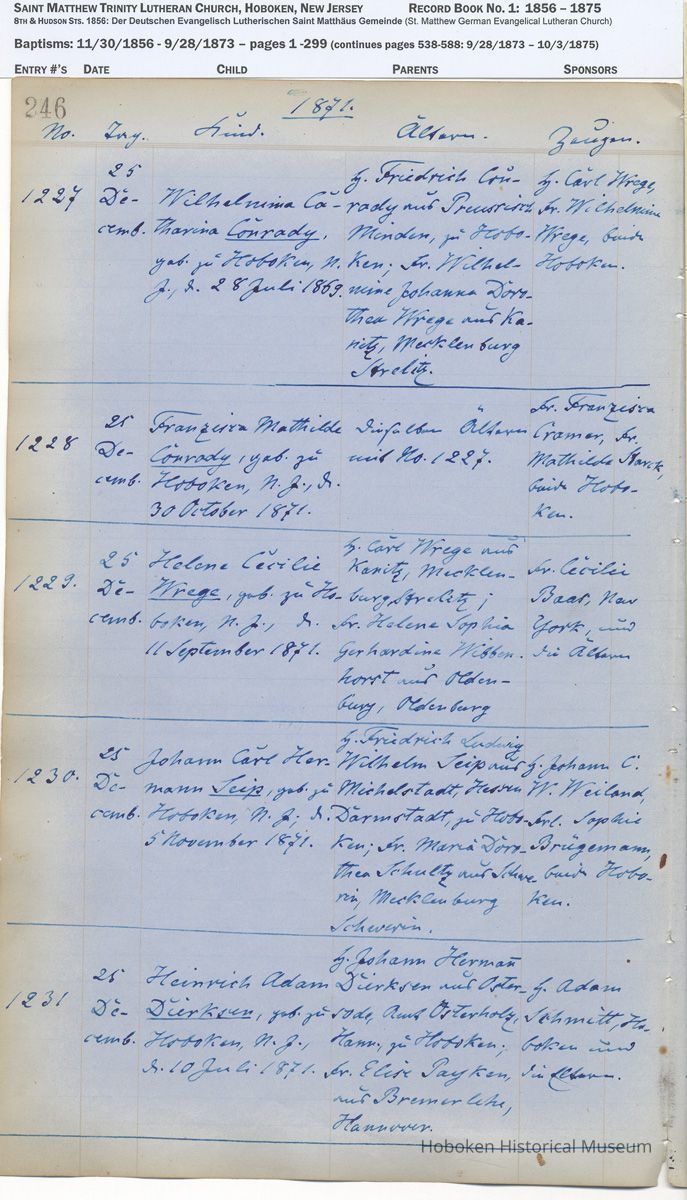 SAINT MATTHEW TRINITY LUTHERAN CHURCH, HOBOKEN, NEW JERSEY RECORD BOOK NO. 1: 1856 – 1875
8TH & HUDSON STS. 1856: Der Deutschen Evangelisch Lutherischen Saint Matthäus Gemeinde (St. Matthew German Evangelical Lutheran Church)
Baptisms: 11/30/1856 - 9/28/1873 – pages 1 -299 (continues pages 538-588: 9/28/1873 – 10/3/1875)
ENTRY #'S DATE CHILD PARENTS SPONSORS
246
1871.
No. Tag. Kind. Ältern. Zeugen.
1227
25
De-
cemb.
Wilhelmina Ca-
tharina Conrady,
geb. zu Hoboken, N.
J., d. 28 Juli 1869.
H. Friedrich Con-
rady aus Preussisch
Minden, zu Hobo-
ken; Fr. Wilhel-
mine Johanna Doro-
thea Wrege aus Ka-
nitz, Mecklenburg
Strelitz.
H. Carl Wrege,
Fr. Wilhelmine
Wrege, beide
Hoboken.
1228
25
De-
cemb.
Franzisca Mathilde
Conrady, geb. zu
Hoboken, N. J., d.
30 October 1871.
dieselben Ältern
mit No. 1227.
Fr. Franzisca
Cramer, Fr.
Mathilde Starck,
beide Hobo-
ken.
1229.
25
De-
cemb.
Helene Cecilie
Wrege, geb. zu Ho-
boken, N. J., d.
11 September 1871.
H. Carl Wrege aus
Kanitz, Mecklen-
burg Strelitz;
Fr. Helene Sophia
Gerhardine Wibben-
horst aus Olden-
burg, Oldenburg
Fr. Cecilie
Baas, New
York, und
die Ältern
1230.
25
De-
cemb.
Johann Carl Her-
mann Seip, geb. zu
Hoboken, N. J., d.
5 November 1871.
H. Friedrich Ludwig
Wilhelm Seip aus
Michelstadt, Hessen
Darmstadt, zu Hobo-
ken; Fr. Maria Doro-
thea Schultz aus Schwe
rin, Mecklenburg
Schwerin.
H. Johann C.
W. Weiland,
Frl. Sophie
Brügemann,
beide Hobo-
ken.
1231
25
De-
cemb.
Heinrich Adam
Dierksen, geb. zu
Hoboken, N. J.,
d. 10 Juli 1871.
H. Johann Hermann
Dierksen aus Oster-
sode, Amt Osterholz,
Hann., zu Hoboken;
Fr. Elise Payken,
aus Bremerlehe,
Hannover.
H. Adam
Schmitt, Ho-
boken und
die Eltern.
Hoboken Historical Museum